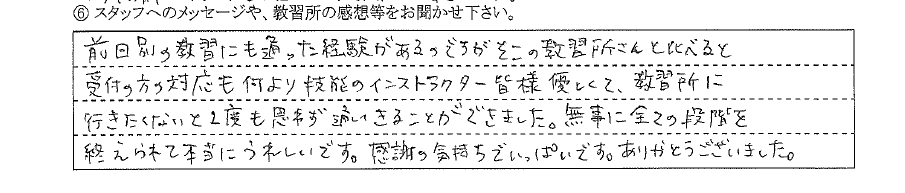 ⑥ スタッフへのメッセージや、教習所の感想等をお聞かせ下さい。
前回別の教習にも通った経験があるのですがそこの教習所さんと比べると
受付の方の対応も何より技能のインストラクター皆様優しくて、教習所に
行きたくないと1度も思わず通いきることができました。無事に全ての段階を
終えられて本当にうれしいです。感謝の気持ちでいっぱいです。ありがとうございました。